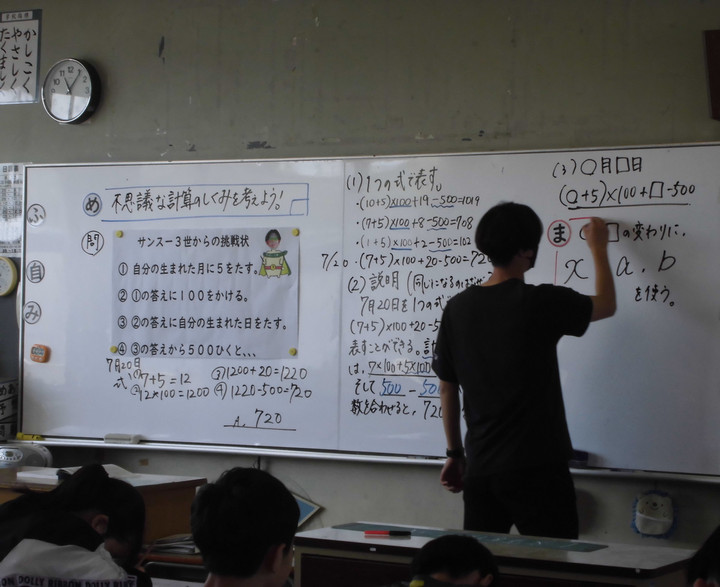 かしこく
やさしく
たくましく
ふ
自
み
め 不思議な計算のしくみを考えよう!
問
サンスー3世からの挑戦状
① 自分の生まれた月に5をたす。
② ①の答えに100をかける。
③ ②の答えに自分の生まれた日をたす。
④ ③の答えから500ひくと、、、
7月20日
式 ① 7+5=12
② 12×100=1200
③ 1200+20=1220
④ 1220-500=720
A. 720
(1) 1つの式で表す。
・(10+5)×100+19-500=1019
・(7+5)×100+8-500=708
・(1+5)×100+2-500=102
7/20・(7+5)×100+20-500=72
(2) 説明(同じになるのは
7月20日を1つの式
(7+5)×100+20-5
表すことができる。
は、7×100+5×100
そして 500-50
数を合わせると、720
(3) ○月□日
(○+5)×100+□-500
ま ○ □の変わりに、
x a、b
を使う。